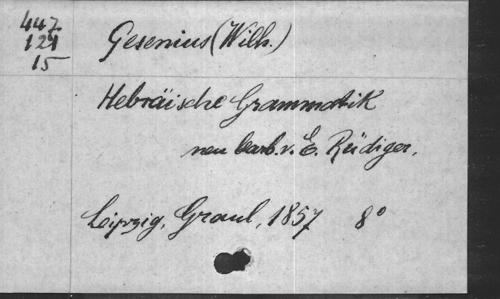 447
121
15
Gesenius (Wilh.)
Hebräische Grammatik
neu bearb. v. E. Rüdiger.
Leipzig, Graul, 1857 8°